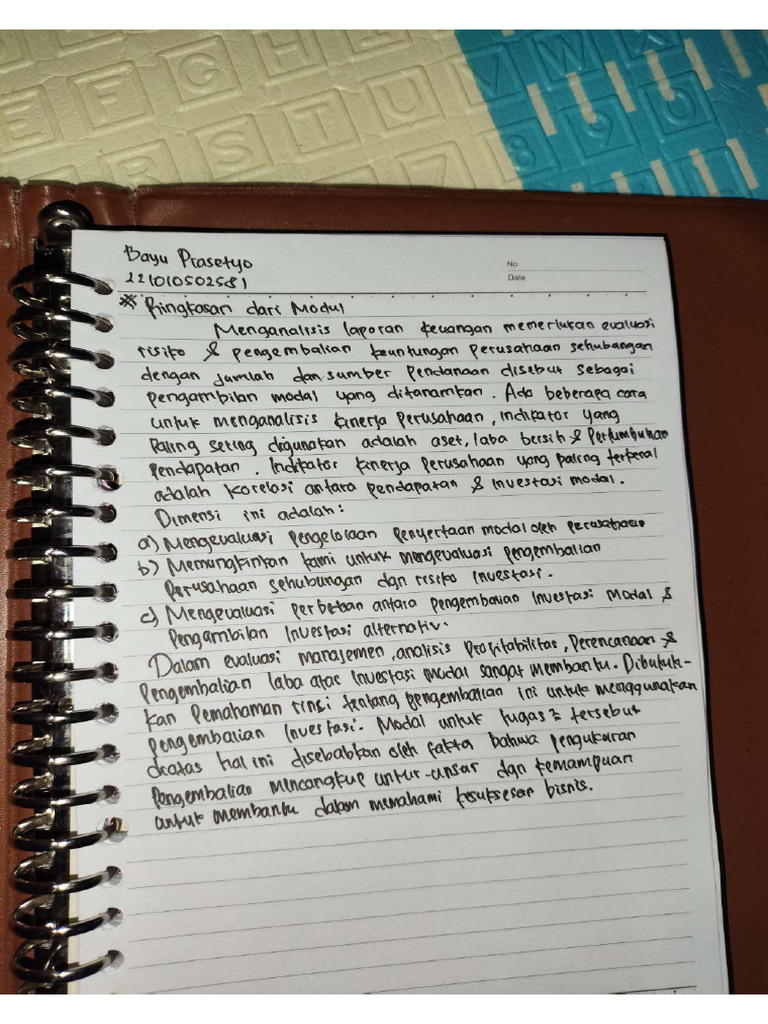 EFGH
QRSTUVWX
7890
No
Date
Bayu Prasetyo
221010502581
* Ringkasan dari Modul
Menganalisis laporan keuangan memerlukan evaluasi
risiko & pengembalian keuntungan perusahaan sehubungan
dengan jumlah dan sumber pendanaan disebut sebagai
pengambilan modal yang ditanamkan. Ada beberapa cara
untuk menganalisis kinerja perusahaan, indikator yang
paling sering digunakan adalah aset, laba bersih & pertumbuhan
pendapatan. Indikator kinerja perusahaan yang paling terkenal
adalah korelasi antara pendapatan & investasi modal.
Dimensi ini adalah:
a) Mengevaluasi pengelolaan penyertaan modal oleh perusahaan
b) Memungkinkan kami untuk mengevaluasi pengembalian
perusahaan sehubungan dgn risiko investasi.
c) Mengevaluasi perbedaan antara pengembalian investasi modal &
pengambilan investasi alternativ.
Dalam evaluasi manajemen, analisis profitabilitas, perencanaan &
pengembalian laba atas investasi modal sangat membantu. Dibutuh-
kan pemahaman rinci tentang pengembalian ini untuk menggunakan
pengembalian investasi. Modal untuk tugas² tersebut
diatas hal ini disebabkan oleh fakta bahwa pengukuran
pengembalian mencangkup untur-unsar dgn kemampuan
untuk membantu dalam memahami kesuksesan bisnis.